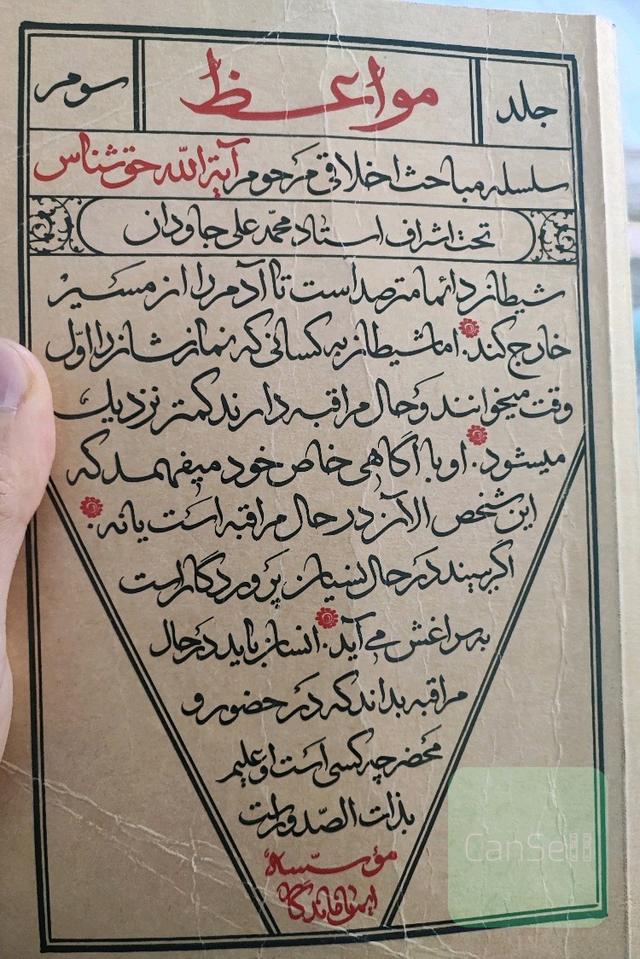 جلد مواعظ سوم
سلسله مباحث اخلاقی مرحوم آیة الله حق شناس
تحت اشراف استاد محمد علی جاودان
شیطان دائما مترصد است تا آدم را از مسیر
خارج کند. اما شیطان به کسانی که نمازشان را اوّل
وقت میخوانند و حال مراقبه دارند کمتر نزدیک
میشود. او با آگاهی خاص خود میفهمد که
این شخص الآن در حال مراقبه است یا نه.
اگر ببیند در حال نسیان پروردگار است
به سراغش می آید. انسان باید در حال
مراقبه بداند که در حضور و
محضر چه کسی است او علیم
بذات الصّدور است
مؤسّسه
ایمان ماندگار
CanSell